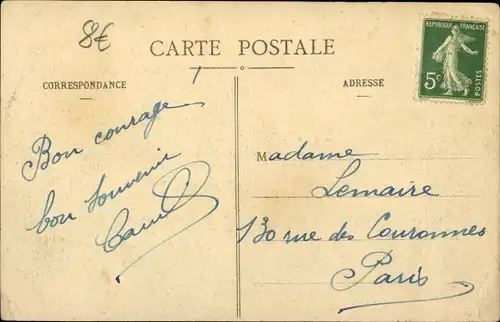 8€
CARTE POSTALE
CORRESPONDANCE
ADRESSE
REPUBLIQUE FRANÇAISE
5c
POSTES
Bon courage !
bon souvenir
Madame
Lemaire
130 rue des Couronnes
Paris